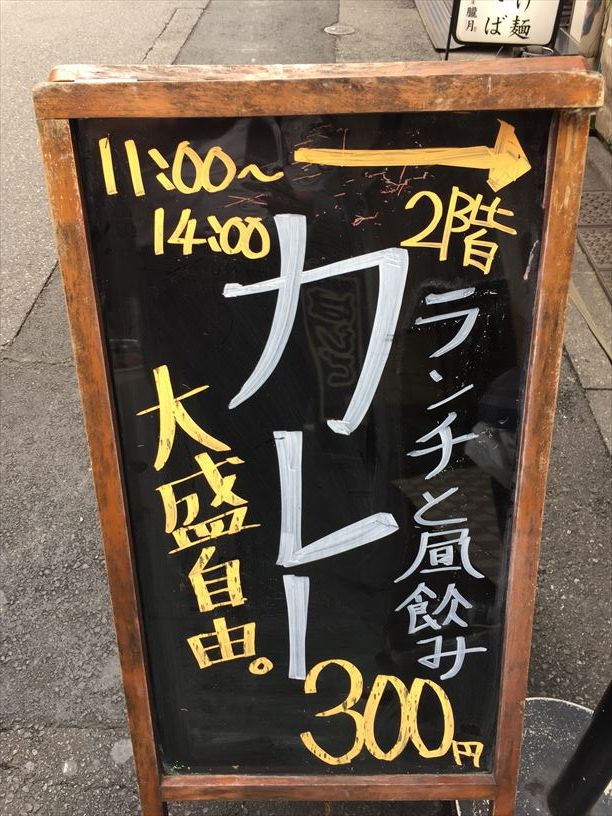 11:00〜
14:00
2階
ランチと昼飲み
カレー
大盛自由。
300円
け麺
ば
朧月